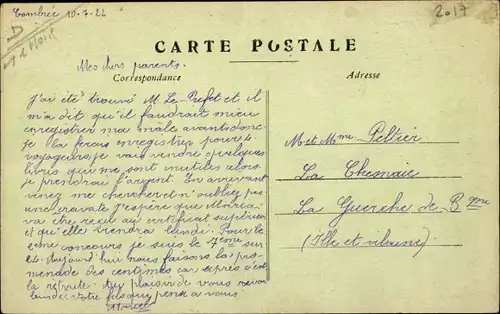 Combrée 10-7-24
2017
CARTE POSTALE
Mes chers parents.
Correspondance
Adresse
J'ai été trouvé M. Le Préfet et il
m'a dit qu'il faudrait mieu
enregistrer ma male avant donc
je la ferais enregistrer pour 4
voyageurs, je vais vendre quelques
livres qui me sont inutiles alors
je prendrai l'argent. En arrivant
venez me chercher et n'oubliez pas
J'espère que Maria
va être reçu au certificat supérieur
et qu'elle viendra lundi. Pour le
2ème concours je suis le 7ème sur
24. Aujourd'hui nous faisons la pro-
menade des centimes car après c'est
la retraite. Au plaisir de vous revoir
lundi votre fils qui pense a vous
M et Mme Peltier
La Chesnaie
La Guerche de Bgne
(Ille et vilaine)